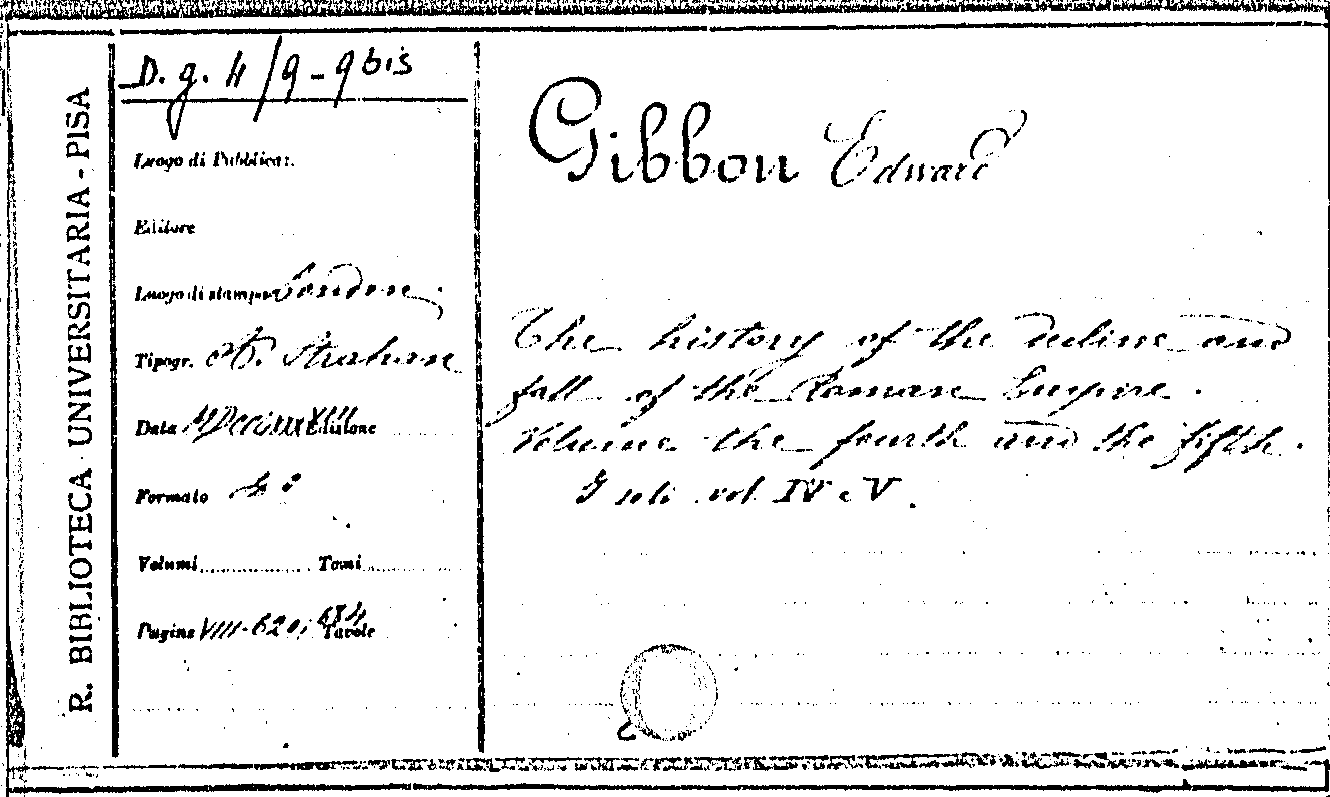 R. BIBLIOTECA UNIVERSITARIA - PISA
D. g. 4/9-9 bis
Luogo di Pubblicaz.
Editore
Luogo di stampa London.
Tipogr. A. Strahan
Data Edizione
Formato 4°
Volumi Tomi
Pagine VIII-620; 684 Tavole
Gibbon Edward
The history of the decline and
fall of the Roman Empire.
Volume the fourth and the fifth.
I soli vol. IV e V.